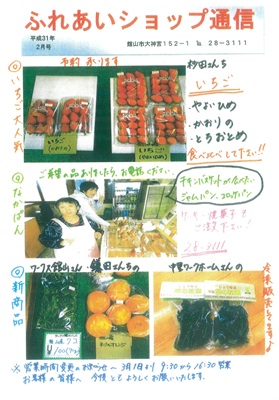 ふれあいショップ通信
平成31年
2月号
館山市大神宮152-1 ℡ 28-3111
◎いちご大人気
予約 承ります
杉田さんちの
いちご
やよいひめ
かおりの
とちおとめ
食べ比べして下さい!!
いちご
いちご
ご希望の品ありましたら、お電話ください。
◎なかぱん
チキンバスケットが食べたい
ジャムパン、コロッケパン
ケーキ・焼菓子も
ご注文下さい!
28-3111
◎新商品
ワークス館山さん・鎌田さんちの
中里ワークホームさんの
冷凍販売してますよ
¥100
※営業時間変更のお知らせ 3月1日より 9:30から16:30営業
お客様の皆様へ 今後ともよろしくお願いいたします。